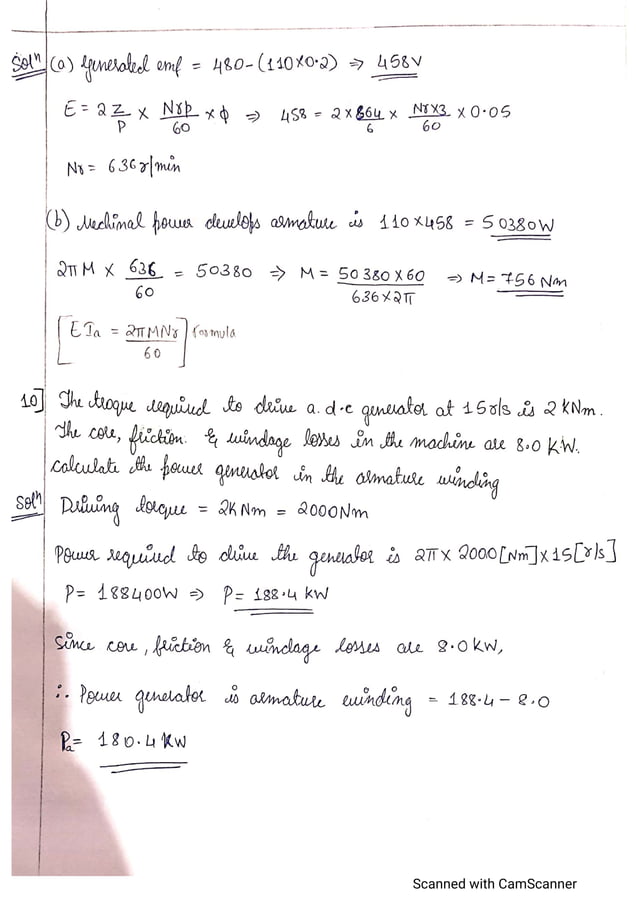 Solⁿ (a) Generated emf = 480-(110×0.2) ⇒ 458V
E = 2 Z/P × Nrp/60 × ϕ ⇒ 458 = 2×864/6 × Nr×3/60 × 0.05
Nr = 636 r/min
(b) Mechinal power develops armature is 110×458 = 50380W
2πM × 636/60 = 50380 ⇒ M = 50380×60/636×2π ⇒ M = 756 Nm
[EIa = 2πMNr/60] formula
10] The troque required to drive a. d.c generator at 15r/s is 2 kNm.
The core, friction & windage losses in the machine are 8.0 KW.
calculate the power generator in the armature winding
Solⁿ Driving torque = 2kNm = 2000Nm
Power required to drive the generator is 2π× 2000[Nm]×15[r/s]
P= 188400W ⇒ P= 188.4 kW
Since core, friction & windage losses are 8.0kW,
∴ Power generator is armature winding = 188.4 - 8.0
Pa= 180.4 KW
Scanned with CamScanner